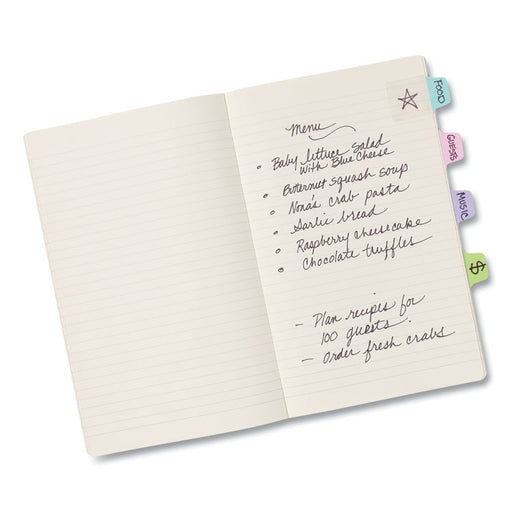 FOOD
GUESTS
MUSIC
$
Menu
Baby lettuce salad
with Blue Cheese
Butternut squash soup
Nona's crab pasta
Garlic bread
Raspberry cheesecake
Chocolate truffles
- Plan recipes for
100 guests.
- Order fresh crabs